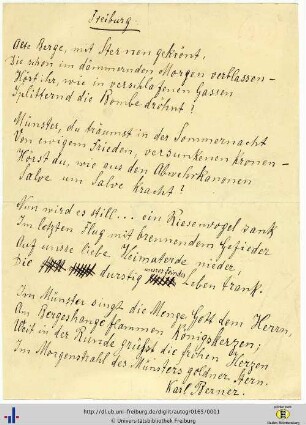 Freiburg
Alte Berge, mit Sternen gekrönt,
Die schon im dämmernden Morgen verblassen -
Hört ihr, wie in verschlafenen Gassen
Splitternd die Bombe dröhnt?
Münster, du träumst in der Sommernacht
Von ewigem Frieden, versunkenen Kronen -
Hörst du, wie aus den Abwehrkanonen
Salve um Salve kracht?
Nun wird es still... ein Riesenvogel sank
Im letzten Flug mit brennendem Gefieder
Auf unsre liebe Heimaterde nieder,
Die durstig Leben trank.
Im Münster singt die Menge Gott dem Herrn,
Am Bergeshange flammen Königskerzen;
Weit in der Runde grüßt die frohen Herzen
Im Morgenstrahl des Münsters goldner Stern.
Karl Berner.
http://dl.ub.uni-freiburg.de/diglit/autogr0163/0001
© Universitätsbibliothek Freiburg